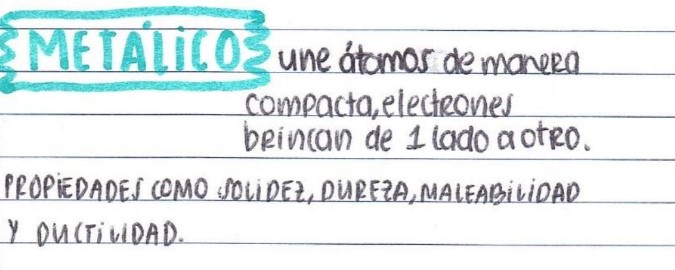 METÁLICO une átomos de manera
compacta, electrones
brincan de 1 lado a otro.
PROPIEDADES COMO SOLIDEZ, DUREZA, MALEABILIDAD
Y DUCTILIDAD.